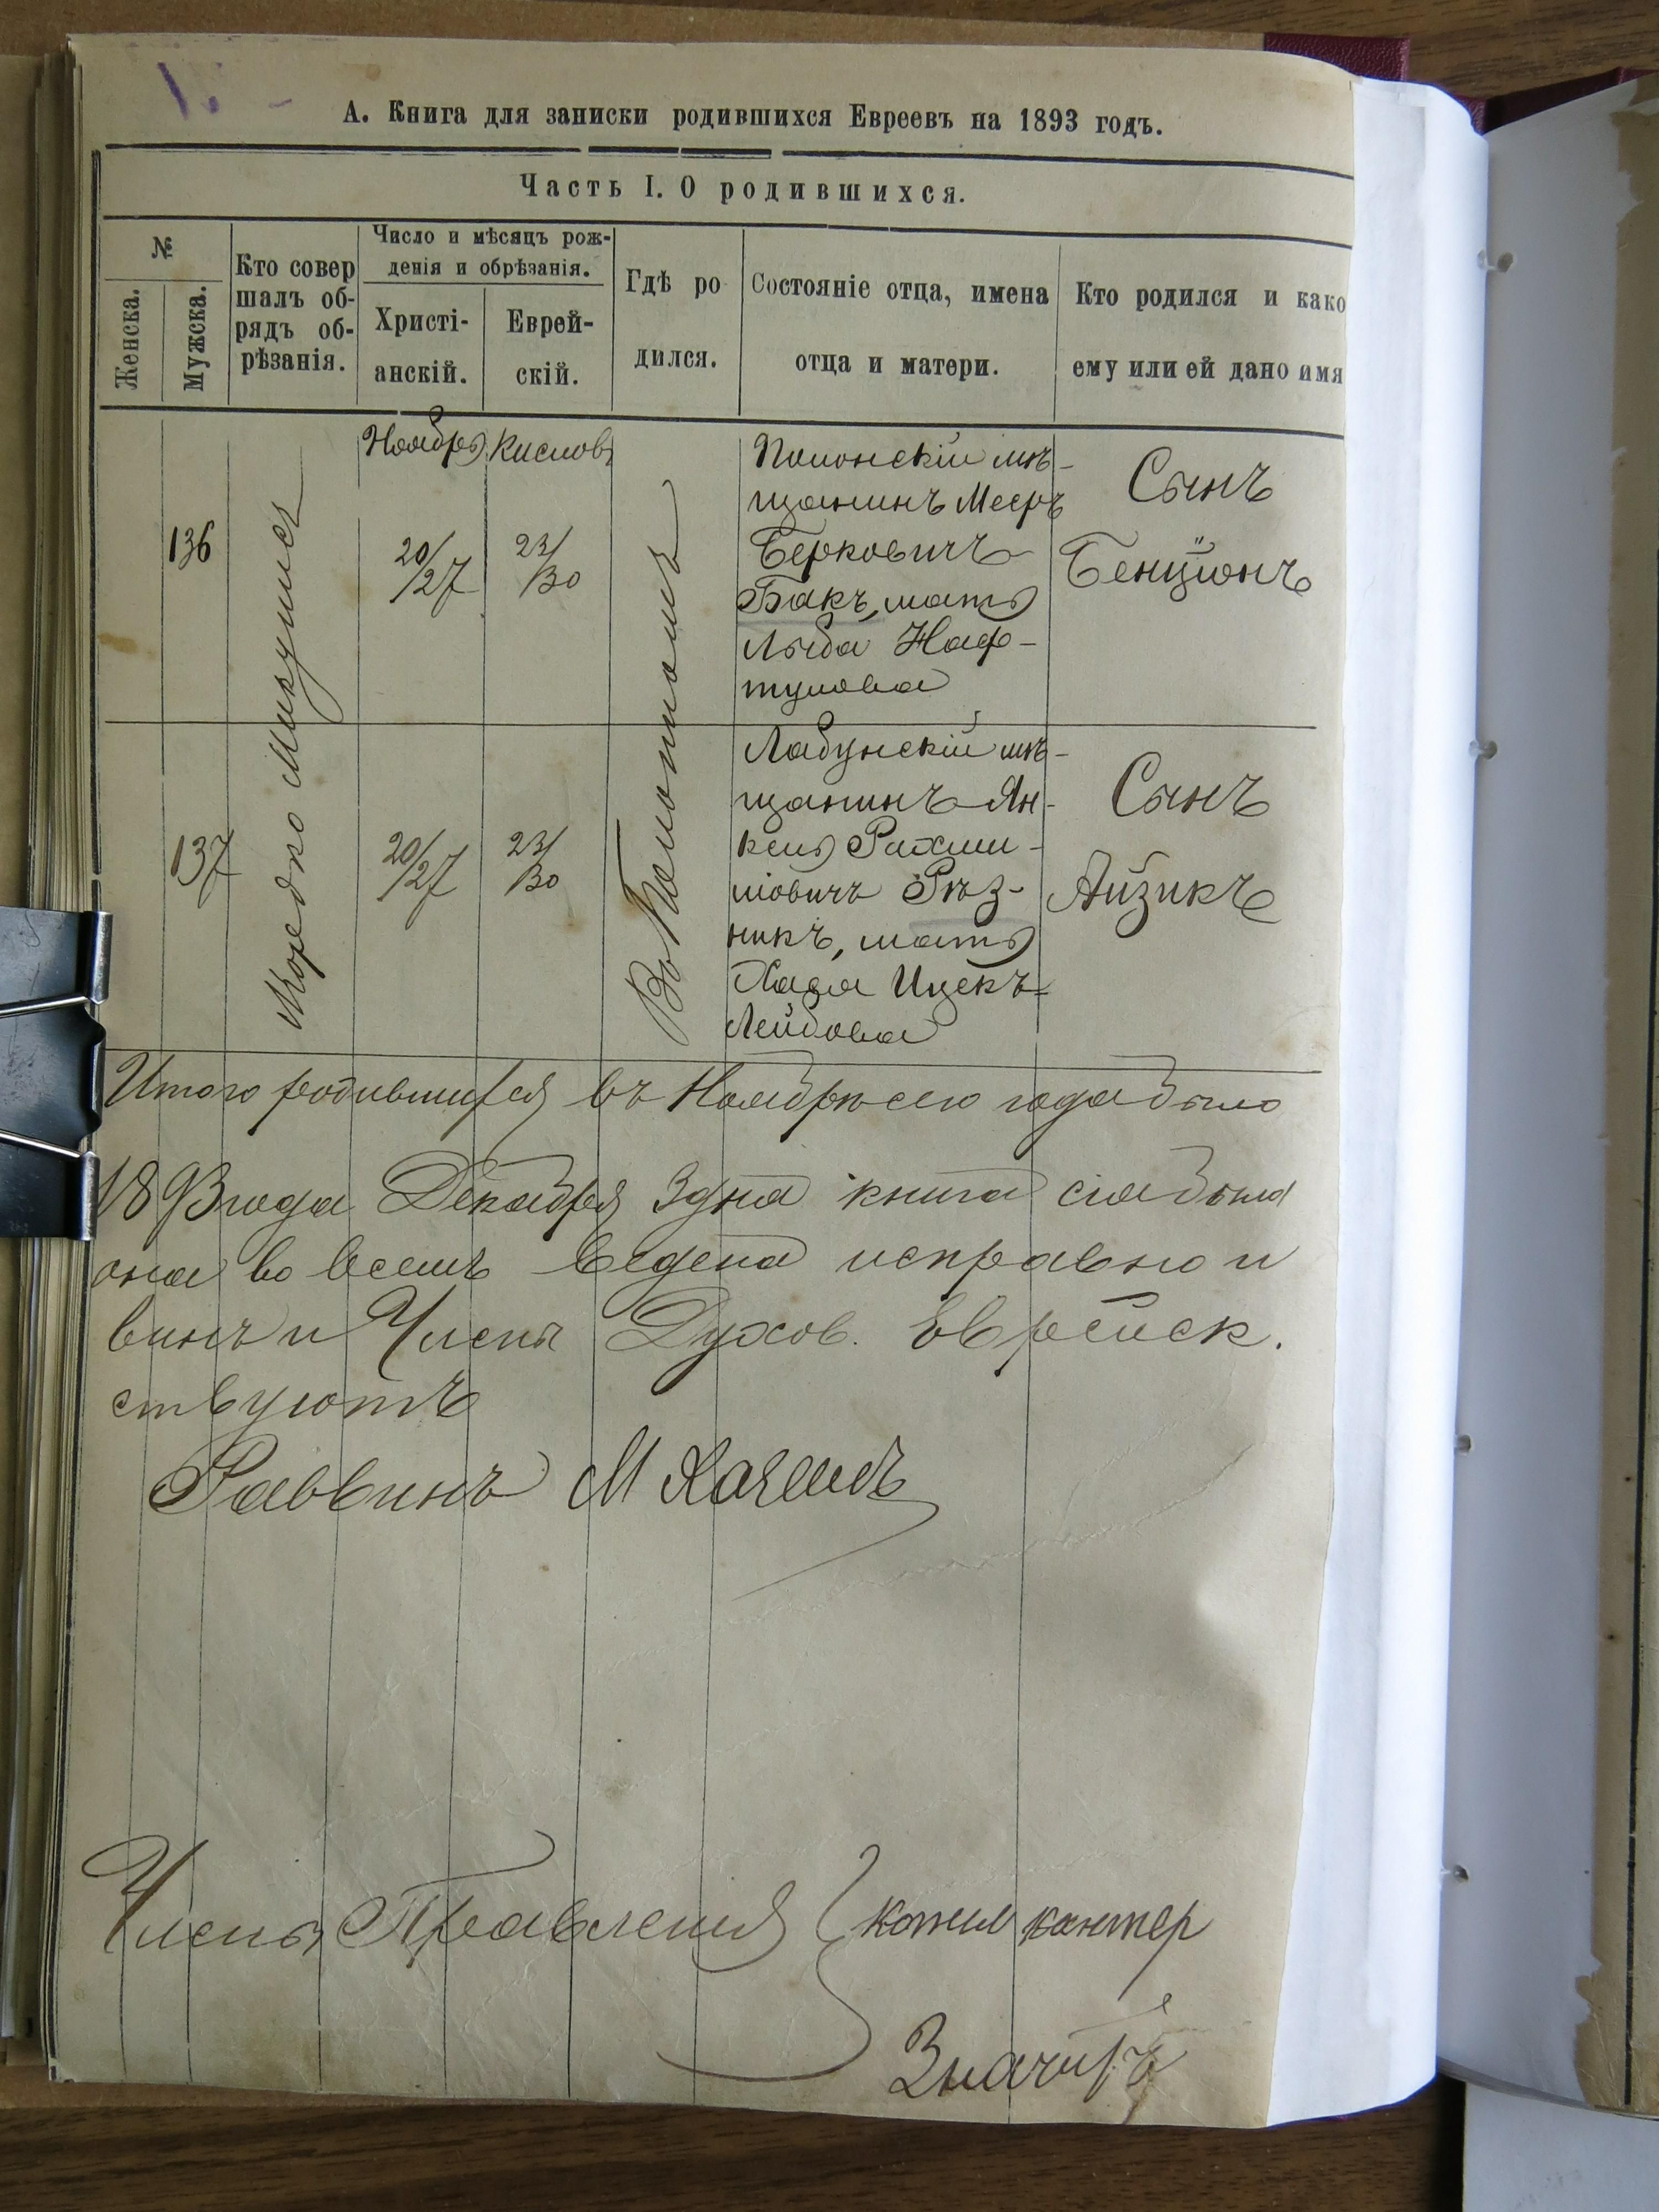 А. Книга для записки родившихся Евреевъ на 1893 годъ.
Часть I. О родившихся.
№
Женска.
Мужска.
Кто совер
шалъ об-
рядъ об-
рѣзанія.
Число и мѣсяцъ рож-
денія и обрѣзанія.
Христі-
анскій.
Еврей-
скій.
Гдѣ ро
дился.
Состояніе отца, имена
отца и матери.
Кто родился и како
ему или ей дано имя
Ноября
Кислов
136
Мордко
20/27
23/30
Въ Полонномъ
Полонскій мѣ-
щанинъ Мееръ
Берковичъ
Бакъ, мать
Наф-
тулова
Сынъ
Бенціонъ
137
20/27
23/30
Лабунскій мѣ-
щанинъ Ян-
кель Рахми-
ліовичъ Рѣз-
никъ, мать
Хая Ицекъ=
Лейбова
Сынъ
Айзикъ
Итого родившихся въ Ноябрѣ сего года было
1893 года Декабря 3 дня книга сія была
она во всемъ ведена исправно и
винъ и Члены Духов. Еврейск.
ствуютъ
Раввинъ М
Члены Правленія
кантер